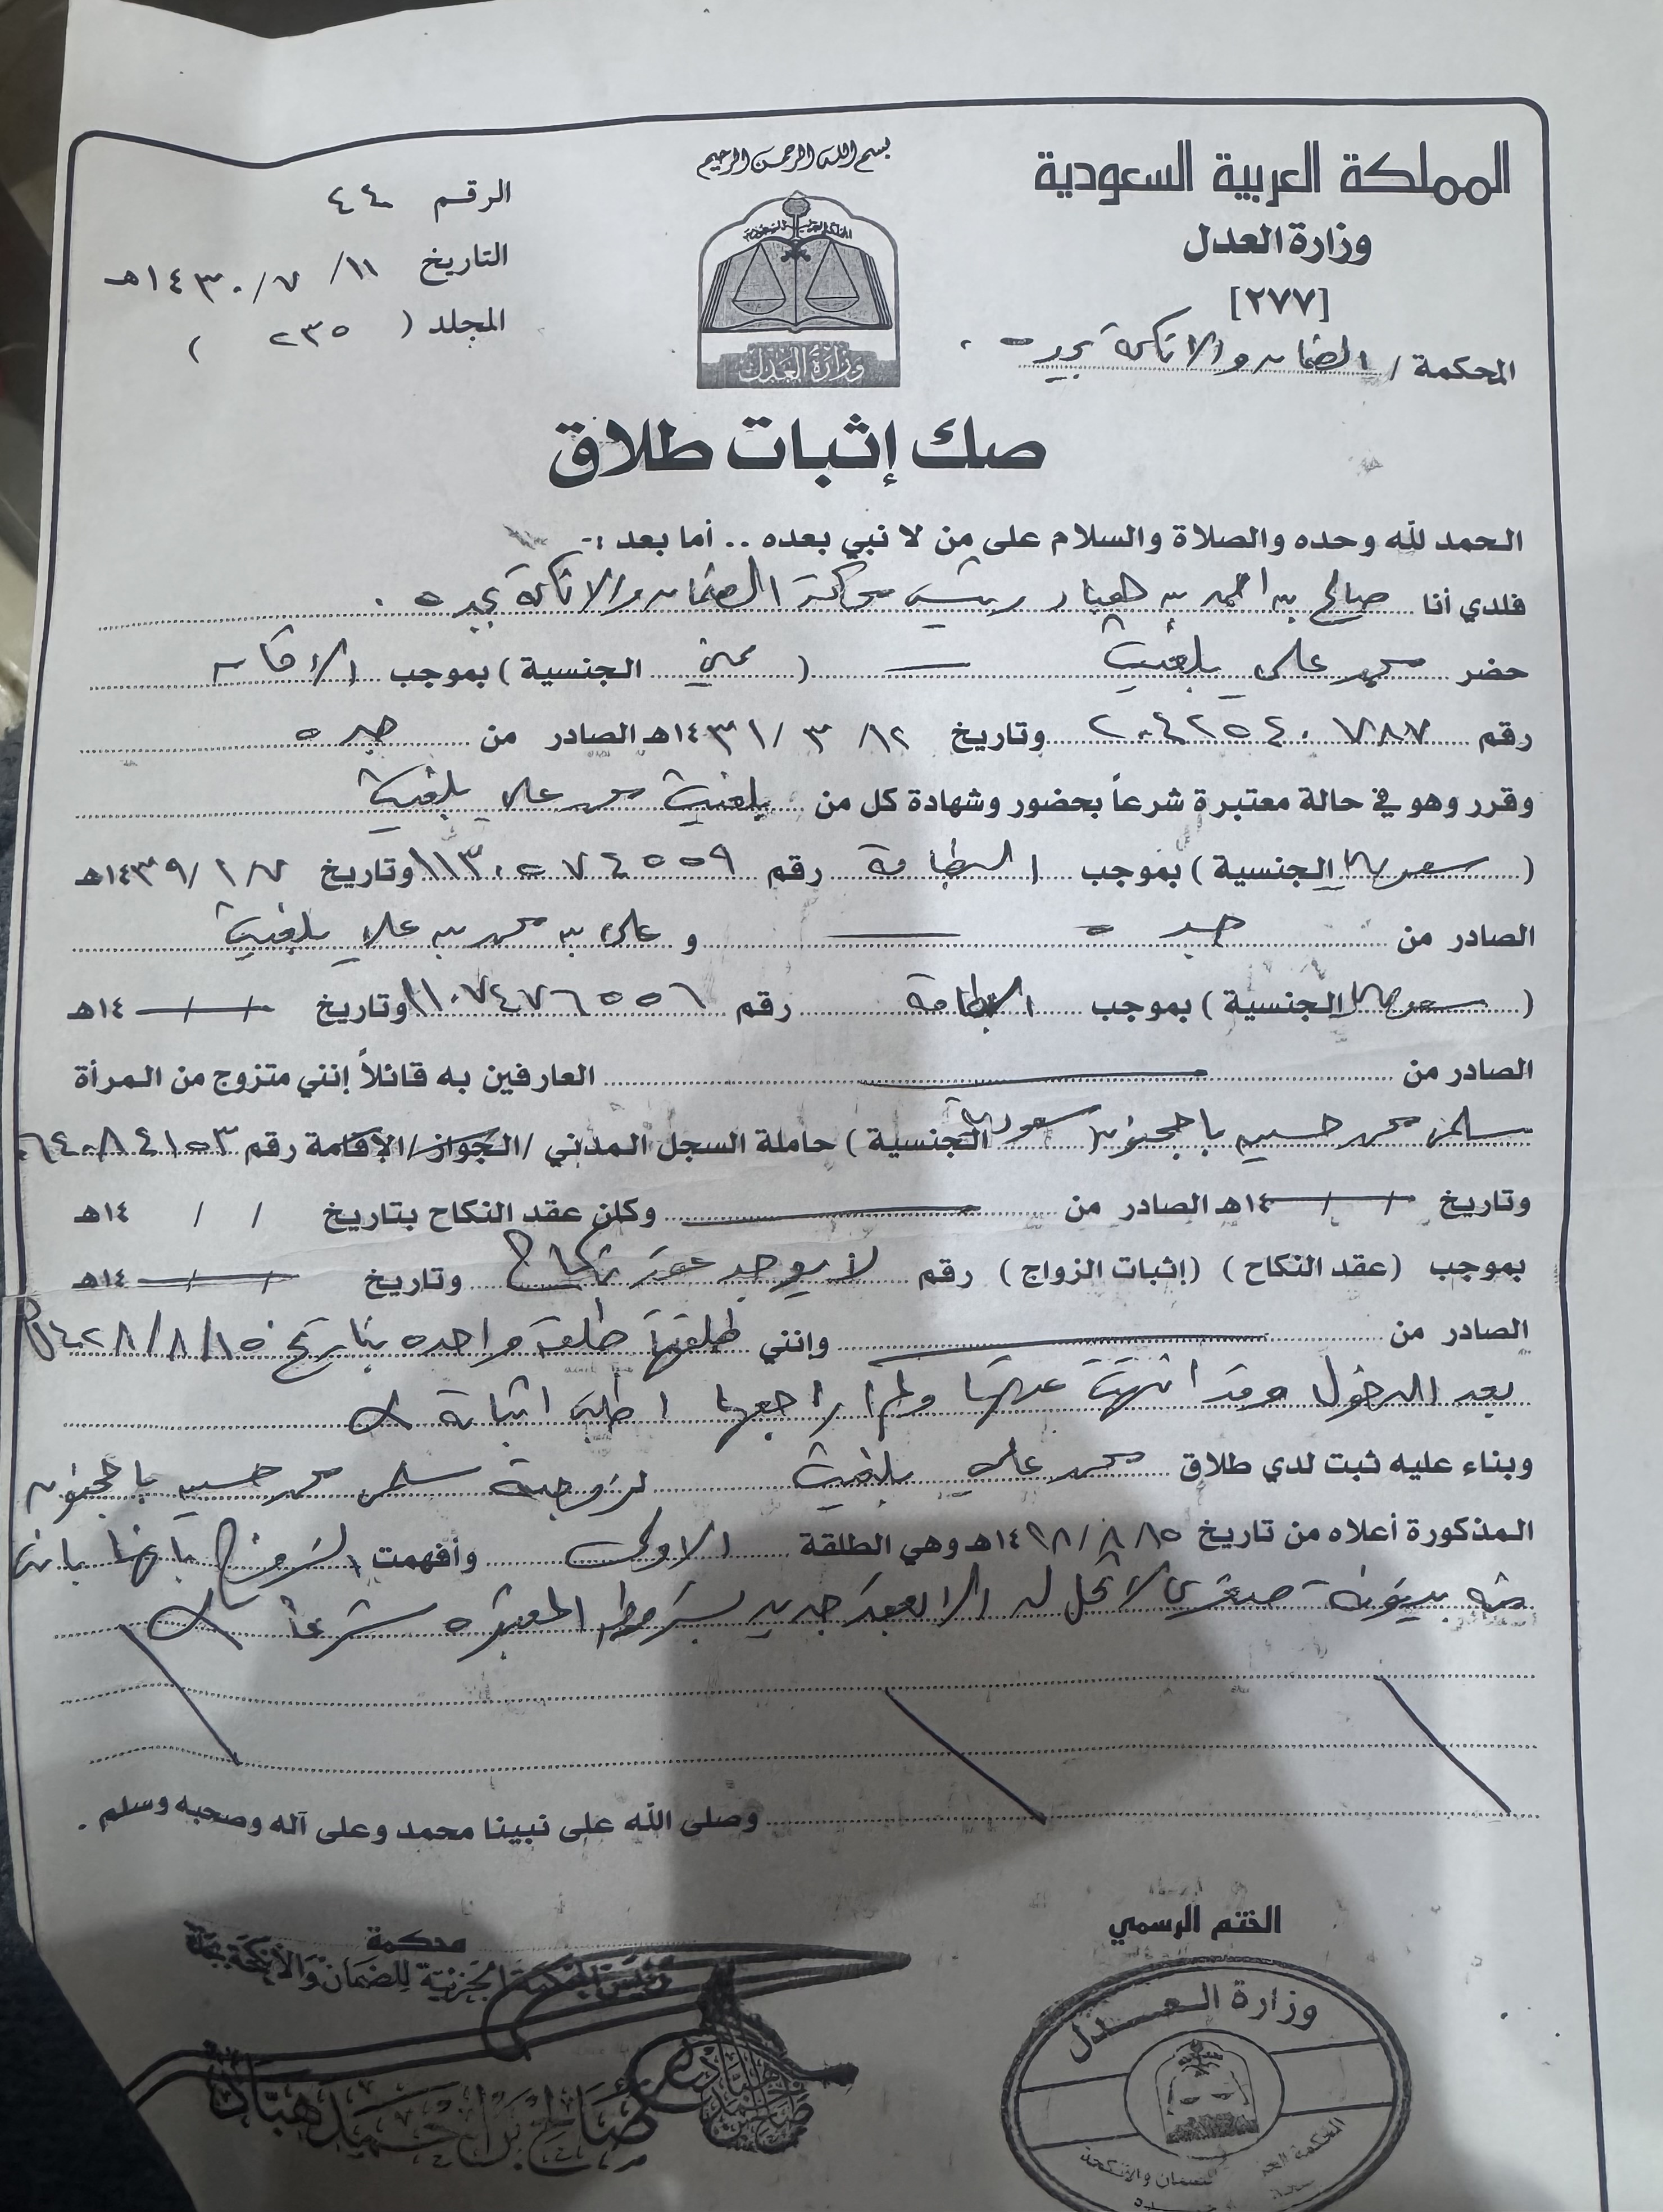 بسم الله الرحمن الرحيم
المملكة العربية السعودية
وزارة العدل
[٢٧٧]
المحكمة / الضمان والانكحة بجدة
الرقم ٤٤
التاريخ ١١ / ٧ / ١٤٣٠هـ
المجلد ( ٢٣٥ )
وزارة العدل
صك إثبات طلاق
الحمد لله وحده والصلاة والسلام على من لا نبي بعده .. أما بعد :-
فلدي أنا صالح بن احمد بن هبار رئيس محكمة الضمان والانكحة بجده .
حضر محمد علي بلغيث ( يمني الجنسية ) بموجب الاقامة
رقم ٢٠٤٢٥٤٠٧٨٧ وتاريخ ١٢ / ٣ / ١٤٣١هـ الصادر من جده
وقرر وهو في حالة معتبرة شرعاً بحضور وشهادة كل من بلغيث محمد علي بلغيث
( سعودي الجنسية ) بموجب البطاقة رقم ١١٣٠٥٧٤٥٥٩ وتاريخ ٧ / ١ / ١٤٣٩هـ
الصادر من جده و علي بن محمد بن علي بلغيث
( سعودي الجنسية ) بموجب البطاقة رقم ١١٠٧٤٧٦٥٥٦ وتاريخ / / ١٤هـ
الصادر من العارفين به قائلاً إنني متزوج من المرأة
سلمى محمد حسين ( سعودية الجنسية ) حاملة السجل المدني / الجواز / الإقامة رقم ٦٤٠٨٤١٥٣
وتاريخ / / ١٤هـ الصادر من وكان عقد النكاح بتاريخ / / ١٤هـ
بموجب (عقد النكاح) (إثبات الزواج) رقم لا يوجد عقد نكاح وتاريخ / / ١٤هـ
الصادر من وإنني طلقتها طلقة واحده بتاريخ ١٥/٨/١٤٢٨هـ
بعد الدخول وقد انتهت عدتها ولم اراجعها اطلب اثباته
وبناء عليه ثبت لدي طلاق محمد علي بلغيث لزوجته سلمى محمد حسين
المذكورة أعلاه من تاريخ ١٥ / ٨ / ١٤٢٨هـ وهي الطلقة الاولى وأفهمت الزوج بانها بانت
منه بينونة صغرى لا تحل له الا بعقد جديد بشروطه المعتبره شرعاً
وصلى الله على نبينا محمد وعلى آله وصحبه وسلم .
الختم الرسمي
محكمة
رئيس المحكمة الجزئية للضمان والأنكحة بجدة
وزارة العدل